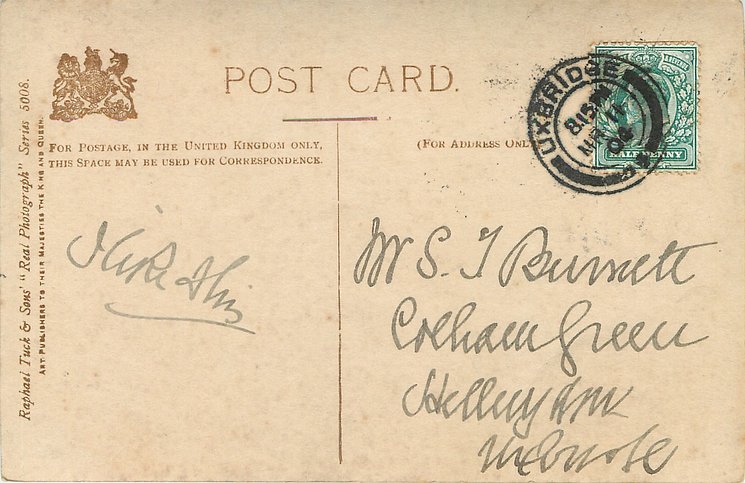 POST CARD.
FOR POSTAGE, IN THE UNITED KINGDOM ONLY,
THIS SPACE MAY BE USED FOR CORRESPONDENCE.
(FOR ADDRESS ONL
Raphael Tuck & Sons' "Real Photograph" Series 5008.
ART PUBLISHERS TO THEIR MAJESTIES THE KING AND QUEEN.
UXBRIDGE
HALFPENNY
I like this
Mr S. T Burnett
Colham Green
Uxbridge